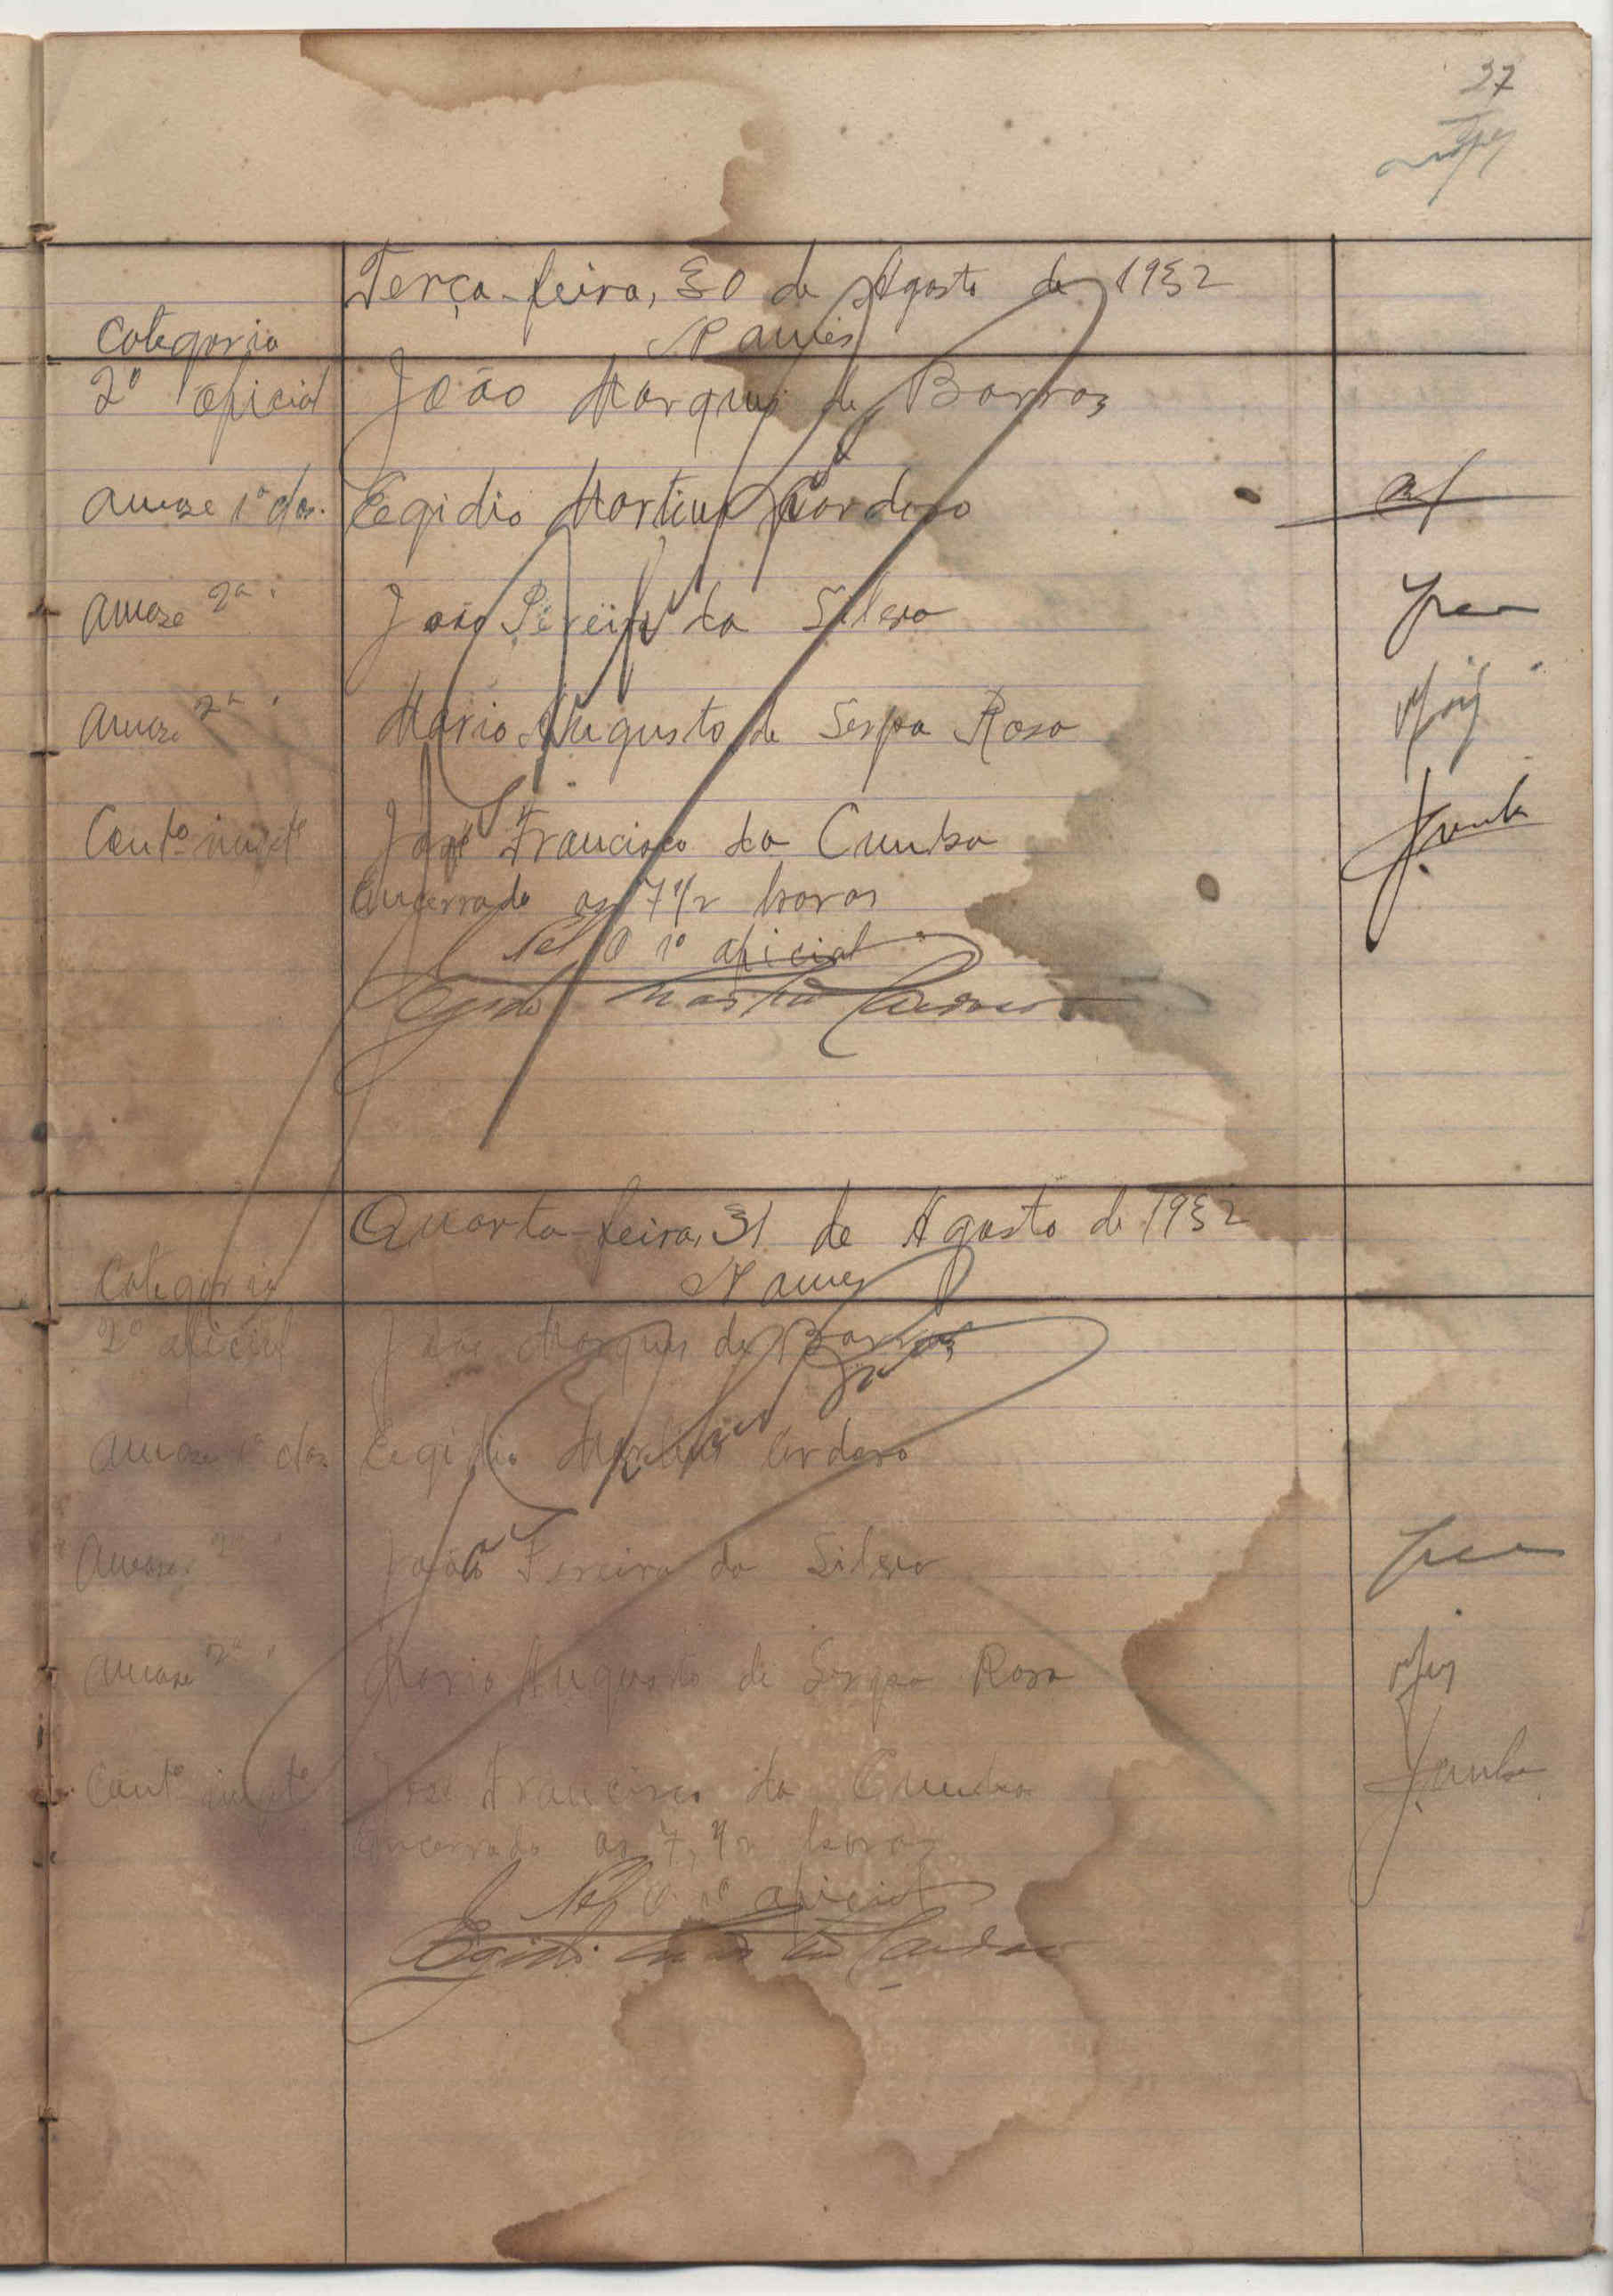 37
Terça-feira, 30 de Agosto de 1932
Categoria Nomes
2º oficial João Marques de Barros
1ª Egidio Martins Cardoso
2ª João Pereira da Silva
2ª Mario Augusto de Serpa Rosa
José Francisco da Cunha
Encerrado as 7 1/2 horas
Pel O 1º oficial
Egidio Martins Cardoso
Quarta-feira, 31 de Agosto de 1932
Categoria Nomes
2º oficial João Marques de Barros
1ª Egidio Martins Cardoso
2ª João Pereira da Silva
2ª Mario Augusto de Serpa Rosa
José Francisco da Cunha
Encerrado as 7, 1/2 horas
Pel O 1º oficial
Egidio Martins Cardoso